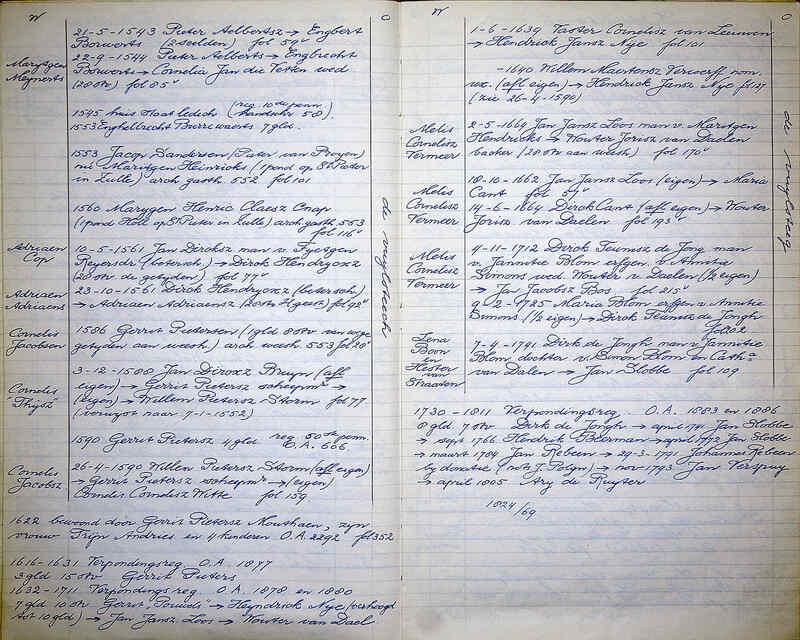 W
O
21-5-1543 Pieter Aelbertsz → Engbert
Borwerts (2 seelden) fol 59v
22-9-1544 Pieter Aelberts → Engbrecht
Borwerts → Cornelia Jan die Vetten wed
(20 stv) fol 85v
Marytgen
Meynerts
1545 huis staat ledich (reg 10de penn.
haardnr 58)
1553 Enghelbrecht Burrewaerts 7 gld.
1553 Jacop Dandersen (Pieter van Prayen)
nu Maritgen Heinricks (1 pond op St Pieter
in Zulle) arch gasth 552 fol 101
1560 Marygen Henric Claesz Cnap
(1 pond Holl op St Pieter in Zulle) arch gasth 553
fol 116v
Adriaen
Cop
10-5-1561 Jan Dircksz man v. Fytgen
Reyersdr (botersch) → Dirck Hendrycxz
(20 stv de getijden) fol 77v
Adriaen
Adriaens
23-10-1561 Dirck Hendrycxz (botersch)
→ Adriaen Adriaensz (20 stv H geest) fol 92v
Cornelis
Jacobsen
1586 Gerrit Pietersen (1 gld 8 stv van wege
getyden aan weesh) arch weesh 553 fol 28v
Cornelis
"Thijsz"
3-12-1588 Jan Dircxz Bruyn (afl
eigen) → Gerrit Pietersz scheepmr →
(eigen) → Willem Pietersz Storm fol 77
(verwijst naar 7-1-1552)
1590 Gerrit Pietersz 4 gld reg 50ste penn.
O.A. 666
Cornelis
Jacobsz
26-4-1590 Willem Pietersz Storm (afl eigen)
→ Gerrit Pietersz scheepmr → (eigen)
Cornelis Cornelisz Witte fol 159
1622 bewoond door Gerrit Pietersz Mouthaen, zijn
vrouw Trijn Andries en 4 kinderen O.A. 2292 fol 352
1616-1631 Verpondingsreg. O.A. 1877
3 gld 15 stv Gerrit Pieters
1632-1711 Verpondingsreg. O.A. 1878 en 1880
7 gld 10 stv Gerrit "Pouwels" → Heyndrick Nye (verhoogd
tot 10 gld) → Jan Jansz Loos → Wouter van Dael
de vuylsteech
W
O
1-6-1639 Vaster Cornelisz van Leeuwen
→ Hendrick Jansz Nye fol 101
-1640 Willem Maertensz Verwerff nom.
ux. (afl eigen) → Hendrick Jansz Nye fol 127
(zie 26-4-1590)
Melis
Cornelisz
Vermeer
2-5-1669 Jan Jansz Loos man v. Maritgen
Hendricks → Wouter Jorisz van Daelen
backer (28 stv aan weesh) fol 170v
Melis
Cornelisz
Vermeer
18-10-1662 Jan Jansz Loos (eigen) → Maria
Cant fol 57v
14-6-1664 Dirck Cant (afl eigen) → Wouter
Jorisz van Daelen fol 193v
Melis
Cornelisz
Vermeer
4-11-1712 Dirck Teunisz de Jong man
v. Jannitie Blom erfgen v. Annitie
Simons wed. Wouter v. Daelen (½ eigen)
→ Jan Jacobsz Bos fol 215v
9-2-1725 Maria Blom erfgen v. Annitie
Simons (½ eigen) → Dirck Teunisz de Jongh
fol 82
Lena
Boon
en
Hester
van
Straaten
7-4-1791 Dirk de Jongh man v. Jannitie
Blom dochter v. Simon Blom en Catha
van Dalen → Jan Slobbe fol 109
1730-1811 Verpondingsreg. O.A. 1883 en 1886
8 gld 7 stv Dirk de Jongh → april 1791 Jan Slobbe
→ sept 1766 Hendrik Boerman → april 1772 Jan Slobbe
→ maart 1784 Jan Kebeen → 29-3-1791 Johannes Kebeen
by donatie (not J. Polijn) → nov 1793 Jan Verspuy
→ april 1805 Ary de Ruyter
1824/69
de vuylsteeg